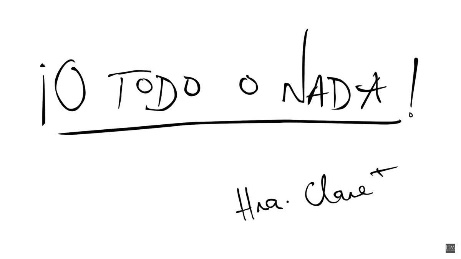 ¡O TODO O NADA!
Hna. Clare +